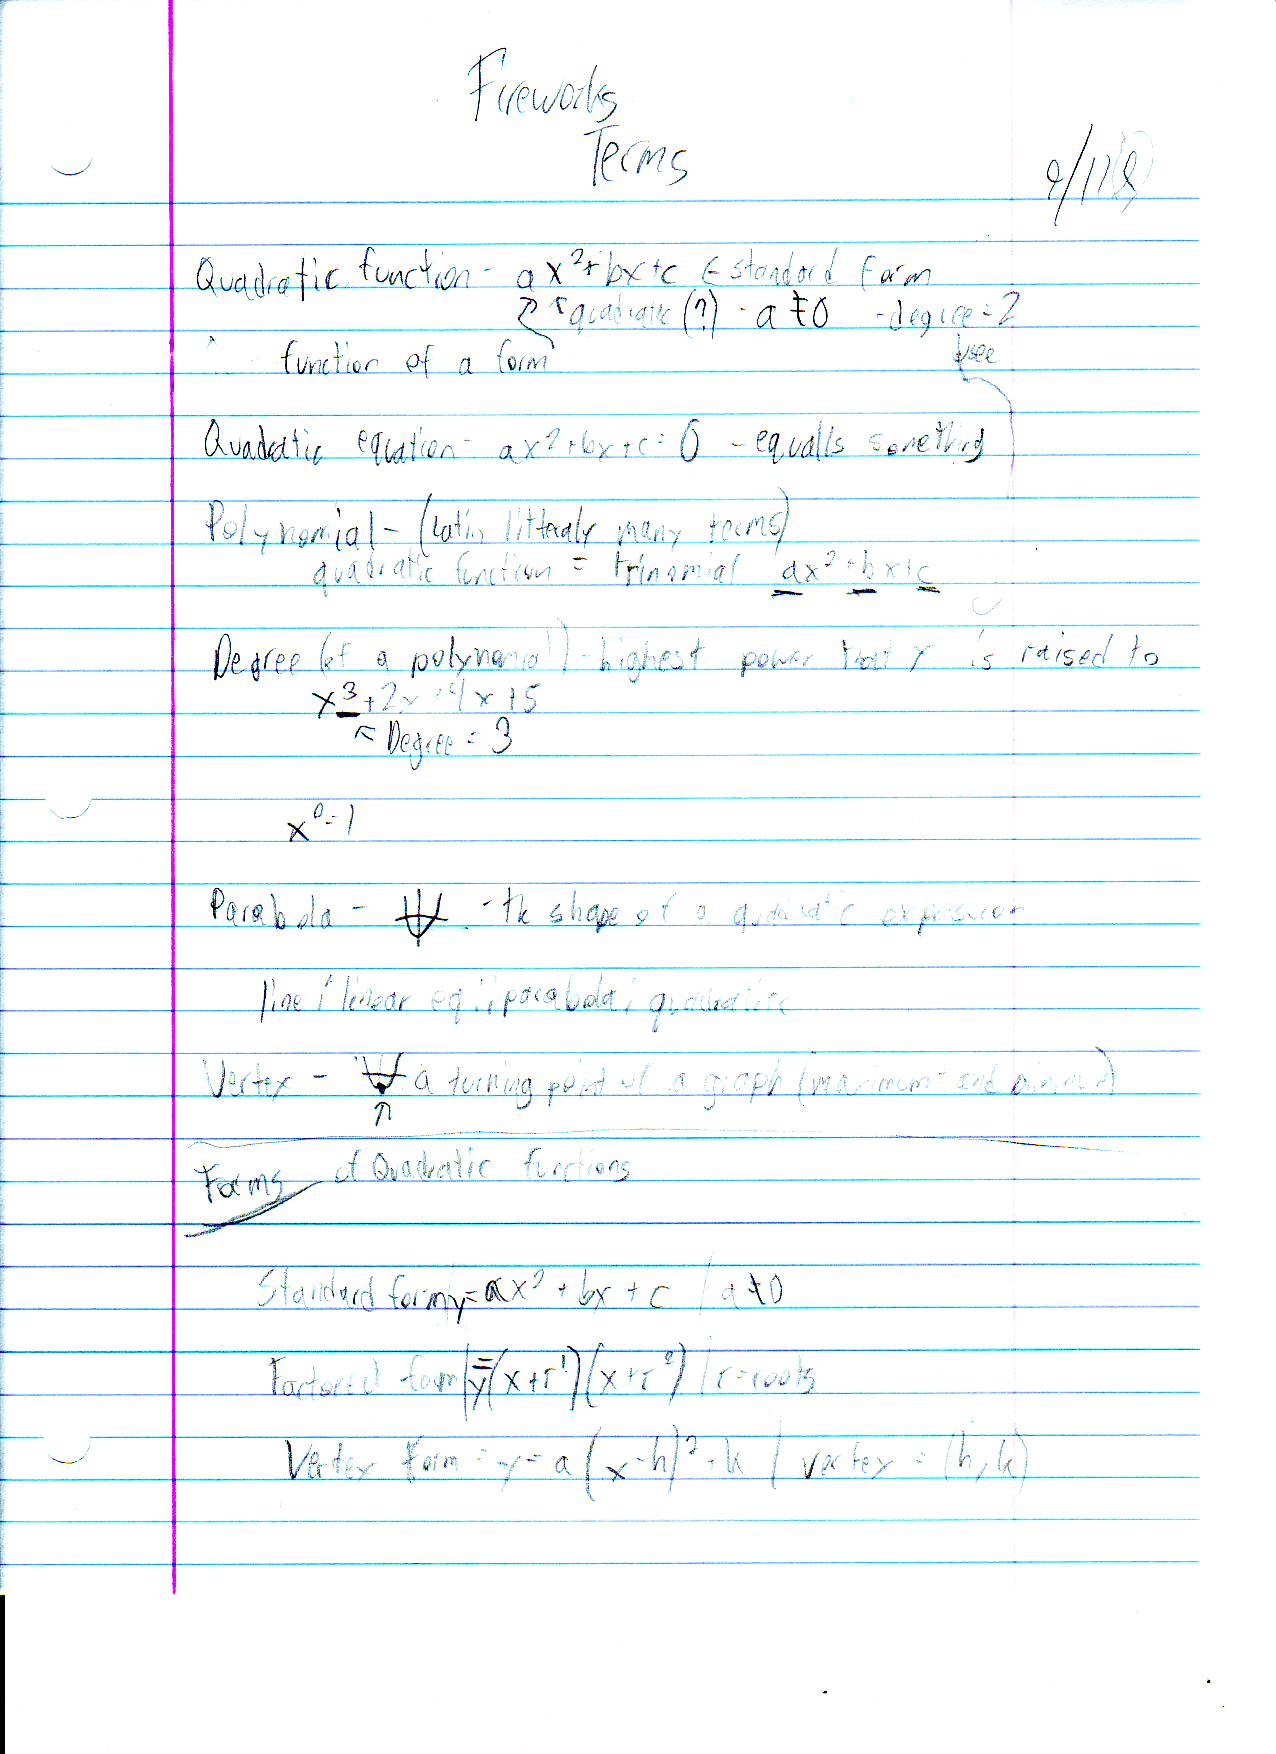 Fireworks
Terms
9/11
Quadratic function - ax²+bx+c ← standard form
↑ ↑ quadratic (?) - a ≠ 0 - degree = 2
function of a form
↓ see
Quadratic equation - ax²+bx+c = 0 - equalls something
Polynomial - (Latin litteraly many terms)
quadratic function = trinomial ax²+bx+c
Degree (of a polynomial) - highest power that x is raised to
x³+2x 4x+5
↖ Degree = 3
x⁰=1
Parabola - - the shape of a quadratic expression
line : linear eq :: parabola : quadratic
Vertex - a turning point of a graph (maximum and minima)
↑
Forms of Quadratic functions
Standard form y= ax² + bx + c / a ≠ 0
Factored form | y = (x+r¹)(x+r²) | r=roots
Vertex form = y = a(x-h)² - k / vertex = (h,k)